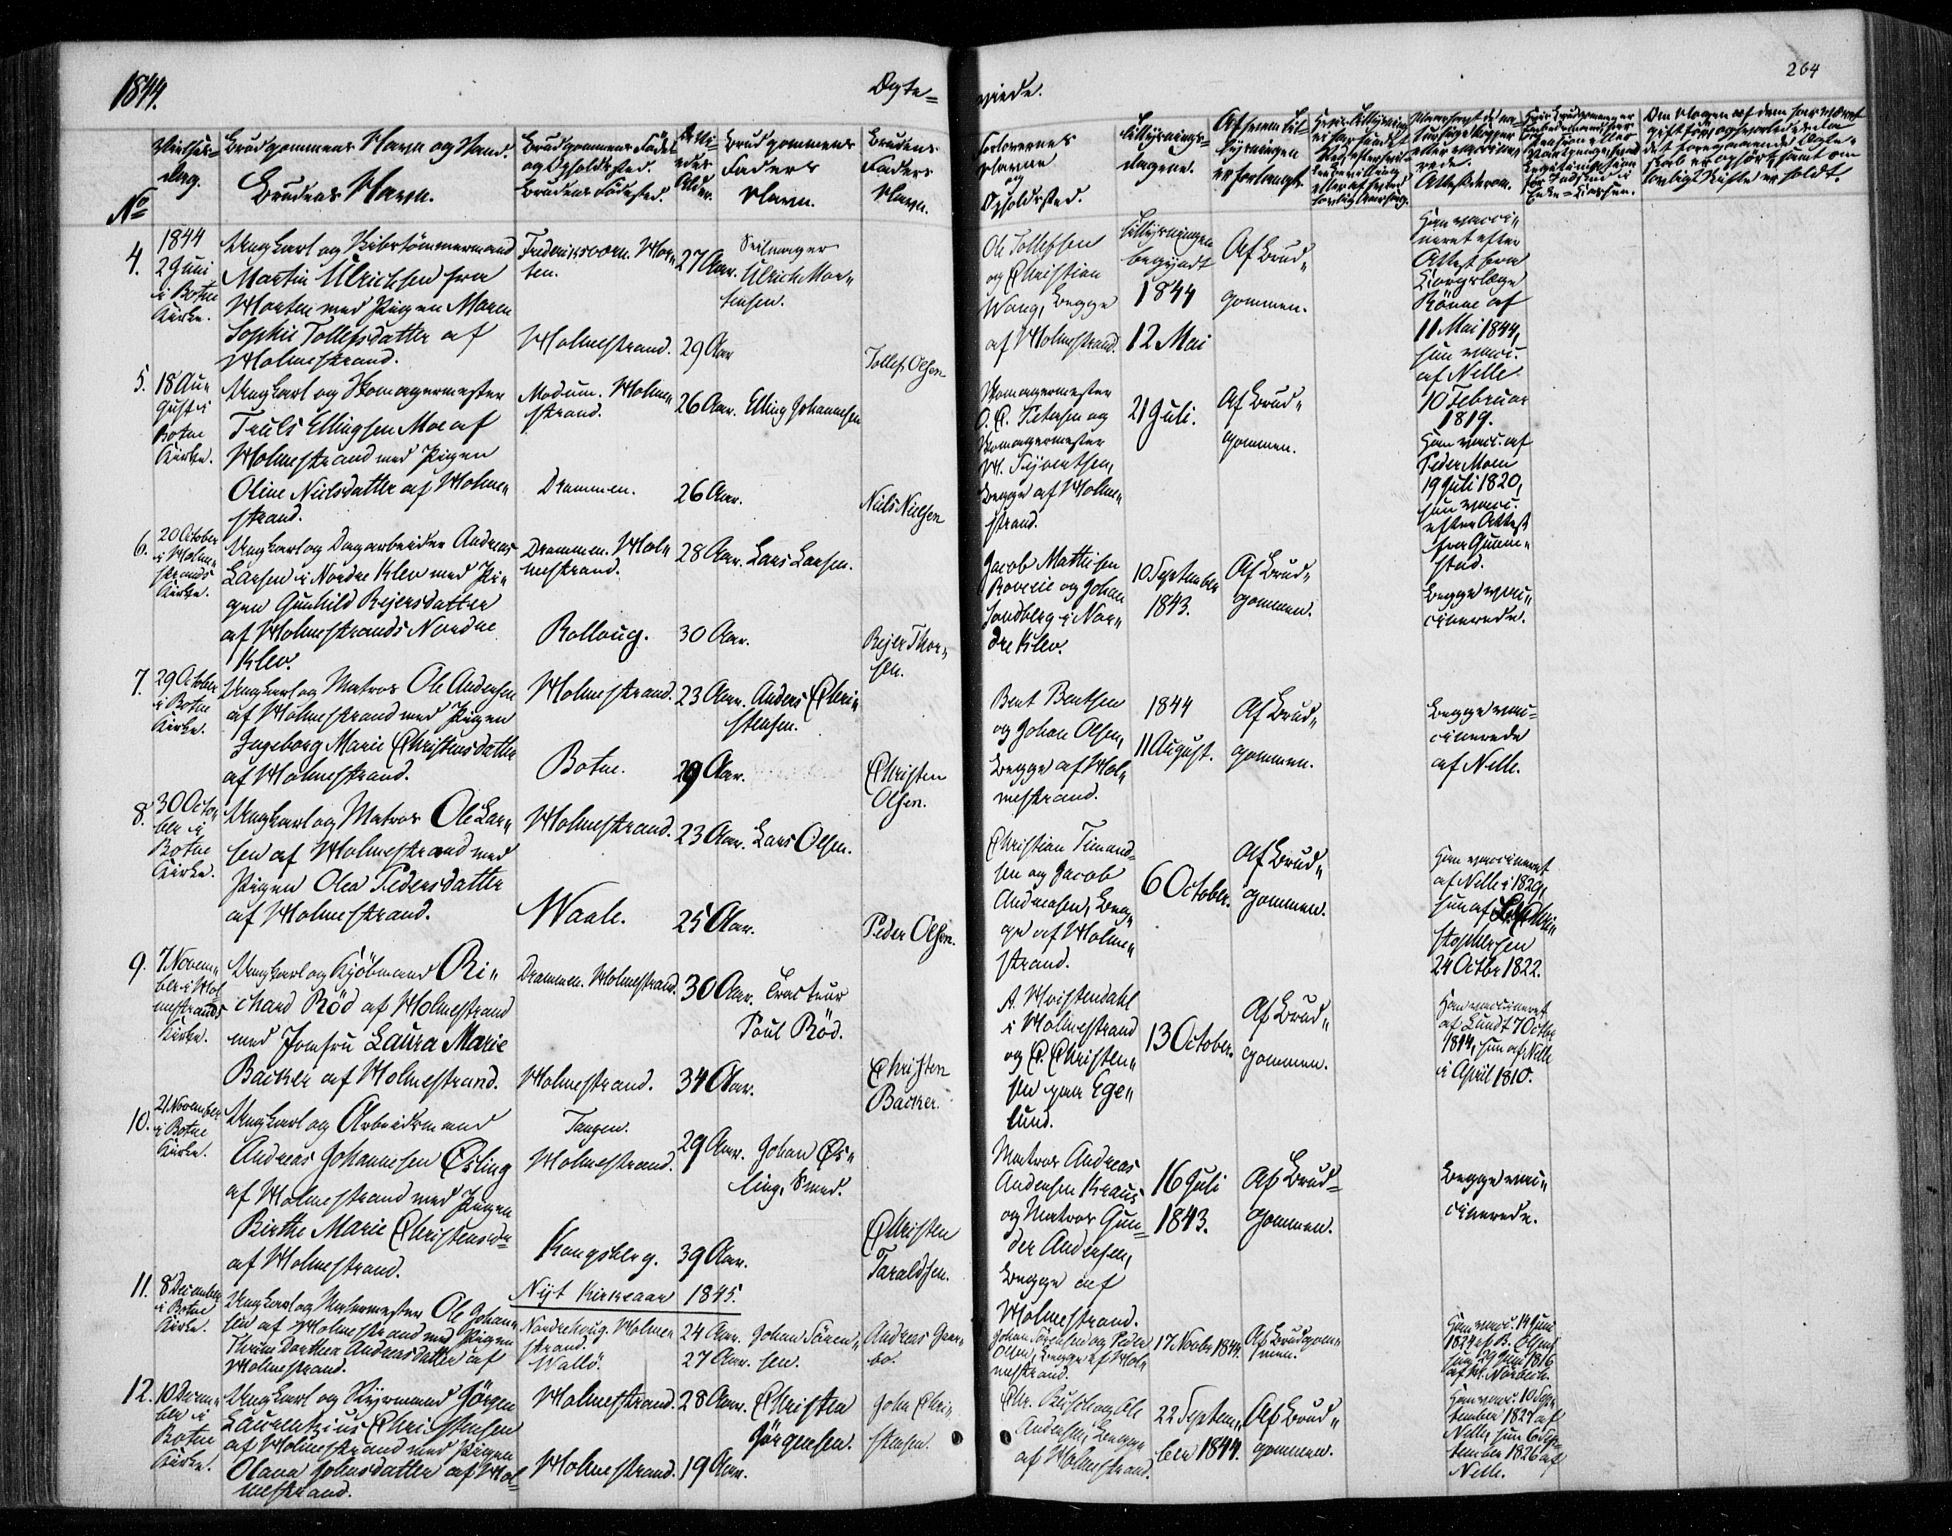 1844.
Ægte-
viede.
264
No
Vielses-
dag.
Brudgommens Navn og Stand.
Brudens Navn.
Brudgommens Føde-
og Opholdssted.
Brudens Fødested.
Alder.
Brudgommens
Faders
Navn.
Brudens
Faders
Navn.
Forlovernes
Navne
og
Opholdssted.
Tillysnings-
dagene.
Af hvem Til-
lysningen
er forlangt.
4.
1844
2 Juni
i Botne
Kirke.
Ungkarl og Skibstømmermand
Martin Ulrichsen fra
Horten med Pigen Maren
Sophie Tollefsdatter af
Holmestrand.
Frederiksværn. Hor-
ten.
Holmestrand.
27 Aar.
29 Aar
Seilmager
Ulrich Mor-
tensen.
Tollef Olsen
Ole Tollefsen
og Christian
Wang, begge
af Holmestrand.
Tillysningen
begyndt
1844
12 Mai
Af Brud-
gommen.
Han vacci-
neret efter
Attest fra
Corpslæge
Rönne af
11 Mai 1844,
hun vacc.
af Nelle
10 Februar
1819.
5.
18 Au-
gust i
Botne
Kirke.
Ungkarl og Skomagermester
Truls Ellingsen Moe af
Holmestrand med Pigen
Oline Nielsdatter af Holme-
strand.
Modum. Holme-
strand.
Drammen.
26 Aar.
26 Aar.
Elling Johannesen
Niels Nielsen
Skomagermester
O. C. Petersen og
Skomagermester
H. Syvertsen,
begge af Holme-
strand.
21 Juli.
Af Brud-
gommen.
Han vacc. af
Peder Moen
19 Juli 1820,
hun vacc.
efter Attest
fra Grim-
stad.
6.
20 October
i Holme-
strands
Kirke.
Ungkarl og Dagarbeider Andreas
Larsen i Nordre Klev med Pi-
gen Gunhild Rejersdatter
af Holmestrands Nordre
Klev.
Drammen. Hol-
mestrand.
Rolloug.
28 Aar.
30 Aar.
Lars Larsen.
Rejer Thor-
sen.
Jacob Mathisen
Roverie og Johan
Sandberg i Nor-
dre Klev.
10 September
1843.
Af Brud-
gommen.
Begge vac-
cinerede.
7.
29 October
i Botne
Kirke.
Ungkarl og Matros Ole Andersen
af Holmestrand med Pigen
Ingeborg Marie Christensdatter
af Holmestrand.
Holmestrand.
Botne.
23 Aar.
29 Aar.
Anders Chri-
stensen.
Christen
Olsen.
Bent Bentsen
og Johan Olsen,
begge af Hol-
mestrand.
1844
11 August.
Af Brud-
gommen.
Begge vac-
cinerede
af Nelle.
8.
30 Octo-
ber i
Botne
Kirke.
Ungkarl og Matros Ole Lar-
sen af Holmestrand med
Pigen Olea Pedersdatter
af Holmestrand.
Holmestrand.
Waale.
23 Aar.
25 Aar.
Lars Olsen.
Peder Olsen.
Christian Timand-
sen og Jacob
Andersen, beg-
ge af Holme-
strand.
6 October.
Af Brud-
gommen.
Han vaccineret
af Nelle i 1829,
hun af Chri-
stophersen
24 Octbr 1822.
9.
7 Novem-
ber i Hol-
mestrands
Kirke.
Ungkarl og Kjöbmand Ri-
chard Röd af Holmestrand
med Jomfru Laura Marie
Backer af Holmestrand.
Drammen. Holmestrand.
Holmestrand.
30 Aar.
34 Aar.
Tracteur
Poul Röd.
Christen
Backer.
A. Hvistendahl
i Holmestrand
og C. Christen-
sen paa Ege-
lund.
13 October.
Af Brud-
gommen.
Han vaccineret
af Lundt 7 Octbr
1814, hun af Nelle
i April 1810.
10.
21 November
i Botne
Kirke.
Ungkarl og Arbeidsmand
Andreas Johannesen Esling
af Holmestrand med Pigen
Birthe Marie Christensdr
af Holmestrand.
Tangen.
Holmestrand.
Kongsberg.
29 Aar.
39 Aar.
Johan Es-
ling, Smed.
Christen
Taraldsen.
Matros Andreas
Andersen Kraus
og Matros Gun-
der Andersen,
begge af
Holmestrand.
16 Juli
1843.
Af Brud-
gommen.
Begge vac-
cinerede.
Nyt Kirkeaar 1845.
11.
8 December
i Botne
Kirke.
Ungkarl og Malermester Ole Johan-
sen af Holmestrand med Pigen
Thrine Dorthea Andreasdatter af
Holmestrand.
Nordrehoug. Holme-
strand.
Wallö.
24 Aar.
27 Aar.
Johan Sören-
sen.
Andreas Gaar-
bo.
Johan Sörensen og Peder
Olsen, begge af Hol-
mestrand.
17 Novbr 1844.
Af Brudgom-
men.
Han vacc. 14 Juni
1824 af B. Olsen,
hun 29 Juni 1819
12.
10 Decem-
ber i
Botne
Kirke.
Ungkarl og Styrmand Jörgen
Laurentzius Christensen
af Holmestrand med Pigen
Olava Johnsdatter af Hol-
mestrand.
Holmestrand.
Holmestrand.
28 Aar.
19 Aar.
Christen
Jörgensen.
John Chri-
stensen.
Chr. Busch og Ole
Andersen, begge
af Holmestrand.
22 Septem-
ber 1844.
Af Brud-
gommen.
Han vacc. 10 Sep-
tember 1827 af
Nelle, hun 6 Sep-
tember 1826 af
Nelle.